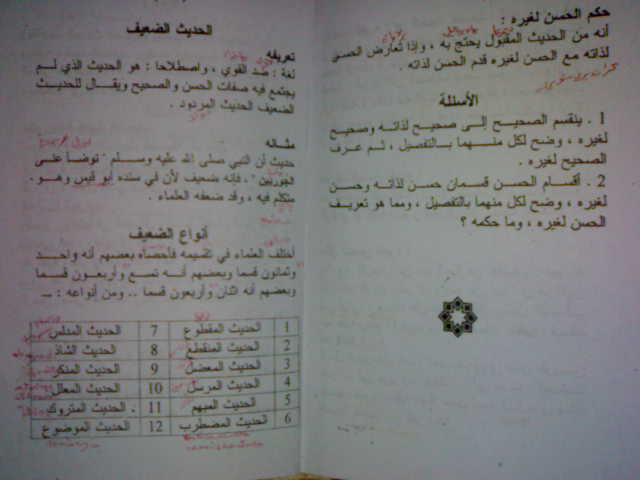 حكم الحسن لغيره :
أنه من الحديث المقبول يحتج به ، وإذا تعارض الحسن
لذاته مع الحسن لغيره قدم الحسن لذاته .
الأسئلة
1 . ينقسم الصحيح إلى صحيح لذاته وصحيح
لغيره ، وضح لكل منهما بالتفصيل ، ثم عرف
الصحيح لغيره .
2 . أقسام الحسن قسمان حسن لذاته وحسن
لغيره ، وضح لكل منهما بالتفصيل ، وما هو تعريف
الحسن لغيره ، وما حكمه ؟
الحديث الضعيف
تعريفه
لغة : ضد القوي ، واصطلاحا : هو الحديث الذي لم
يجتمع فيه صفات الحسن والصحيح ويقال للحديث
الضعيف الحديث المردود .
مثاله
حديث أن النبي صلى الله عليه وسلم " توضأ على
الجوربين " ، فإنه ضعيف لأن في سنده أبو قيس وهو
متكلم فيه ، وقد ضعفه العلماء .
أنواع الضعيف
أختلف العلماء في تقسيمه فأحصاه بعضهم أنه واحد
وثمانون قسما وبعضهم أنه تسع وأربعون قسما
وبعضهم أنه اثنان وأربعون قسما .. ومن أنواعه : ـــ
1 الحديث المقطوع 7 الحديث المدلس
2 الحديث المنقطع 8 الحديث الشاذ
3 الحديث المعضل 9 الحديث المنكر
4 الحديث المرسل 10 الحديث المعلل
5 الحديث المبهم 11 الحديث المتروك
6 الحديث المضطرب 12 الحديث الموضوع